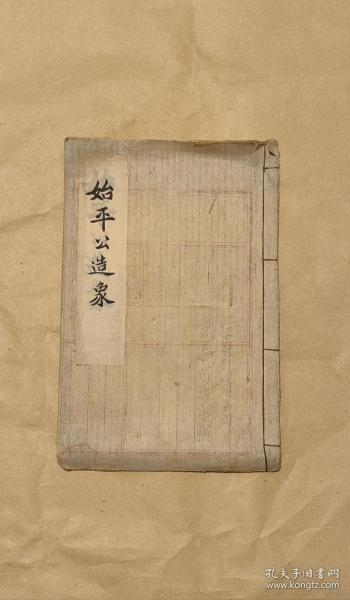 始平公造象
孔夫子旧书网
www.kongfz.com